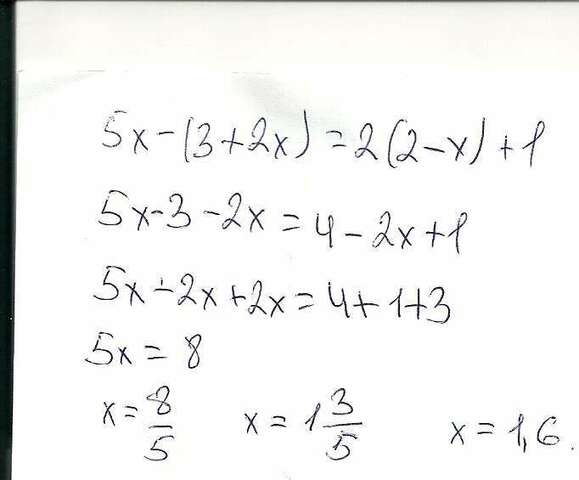 5x-(3+2x)=2(2-x)+1
5x-3-2x=4-2x+1
5x-2x+2x=4+1+3
5x=8
x=8/5 x=1 3/5 x=1,6.